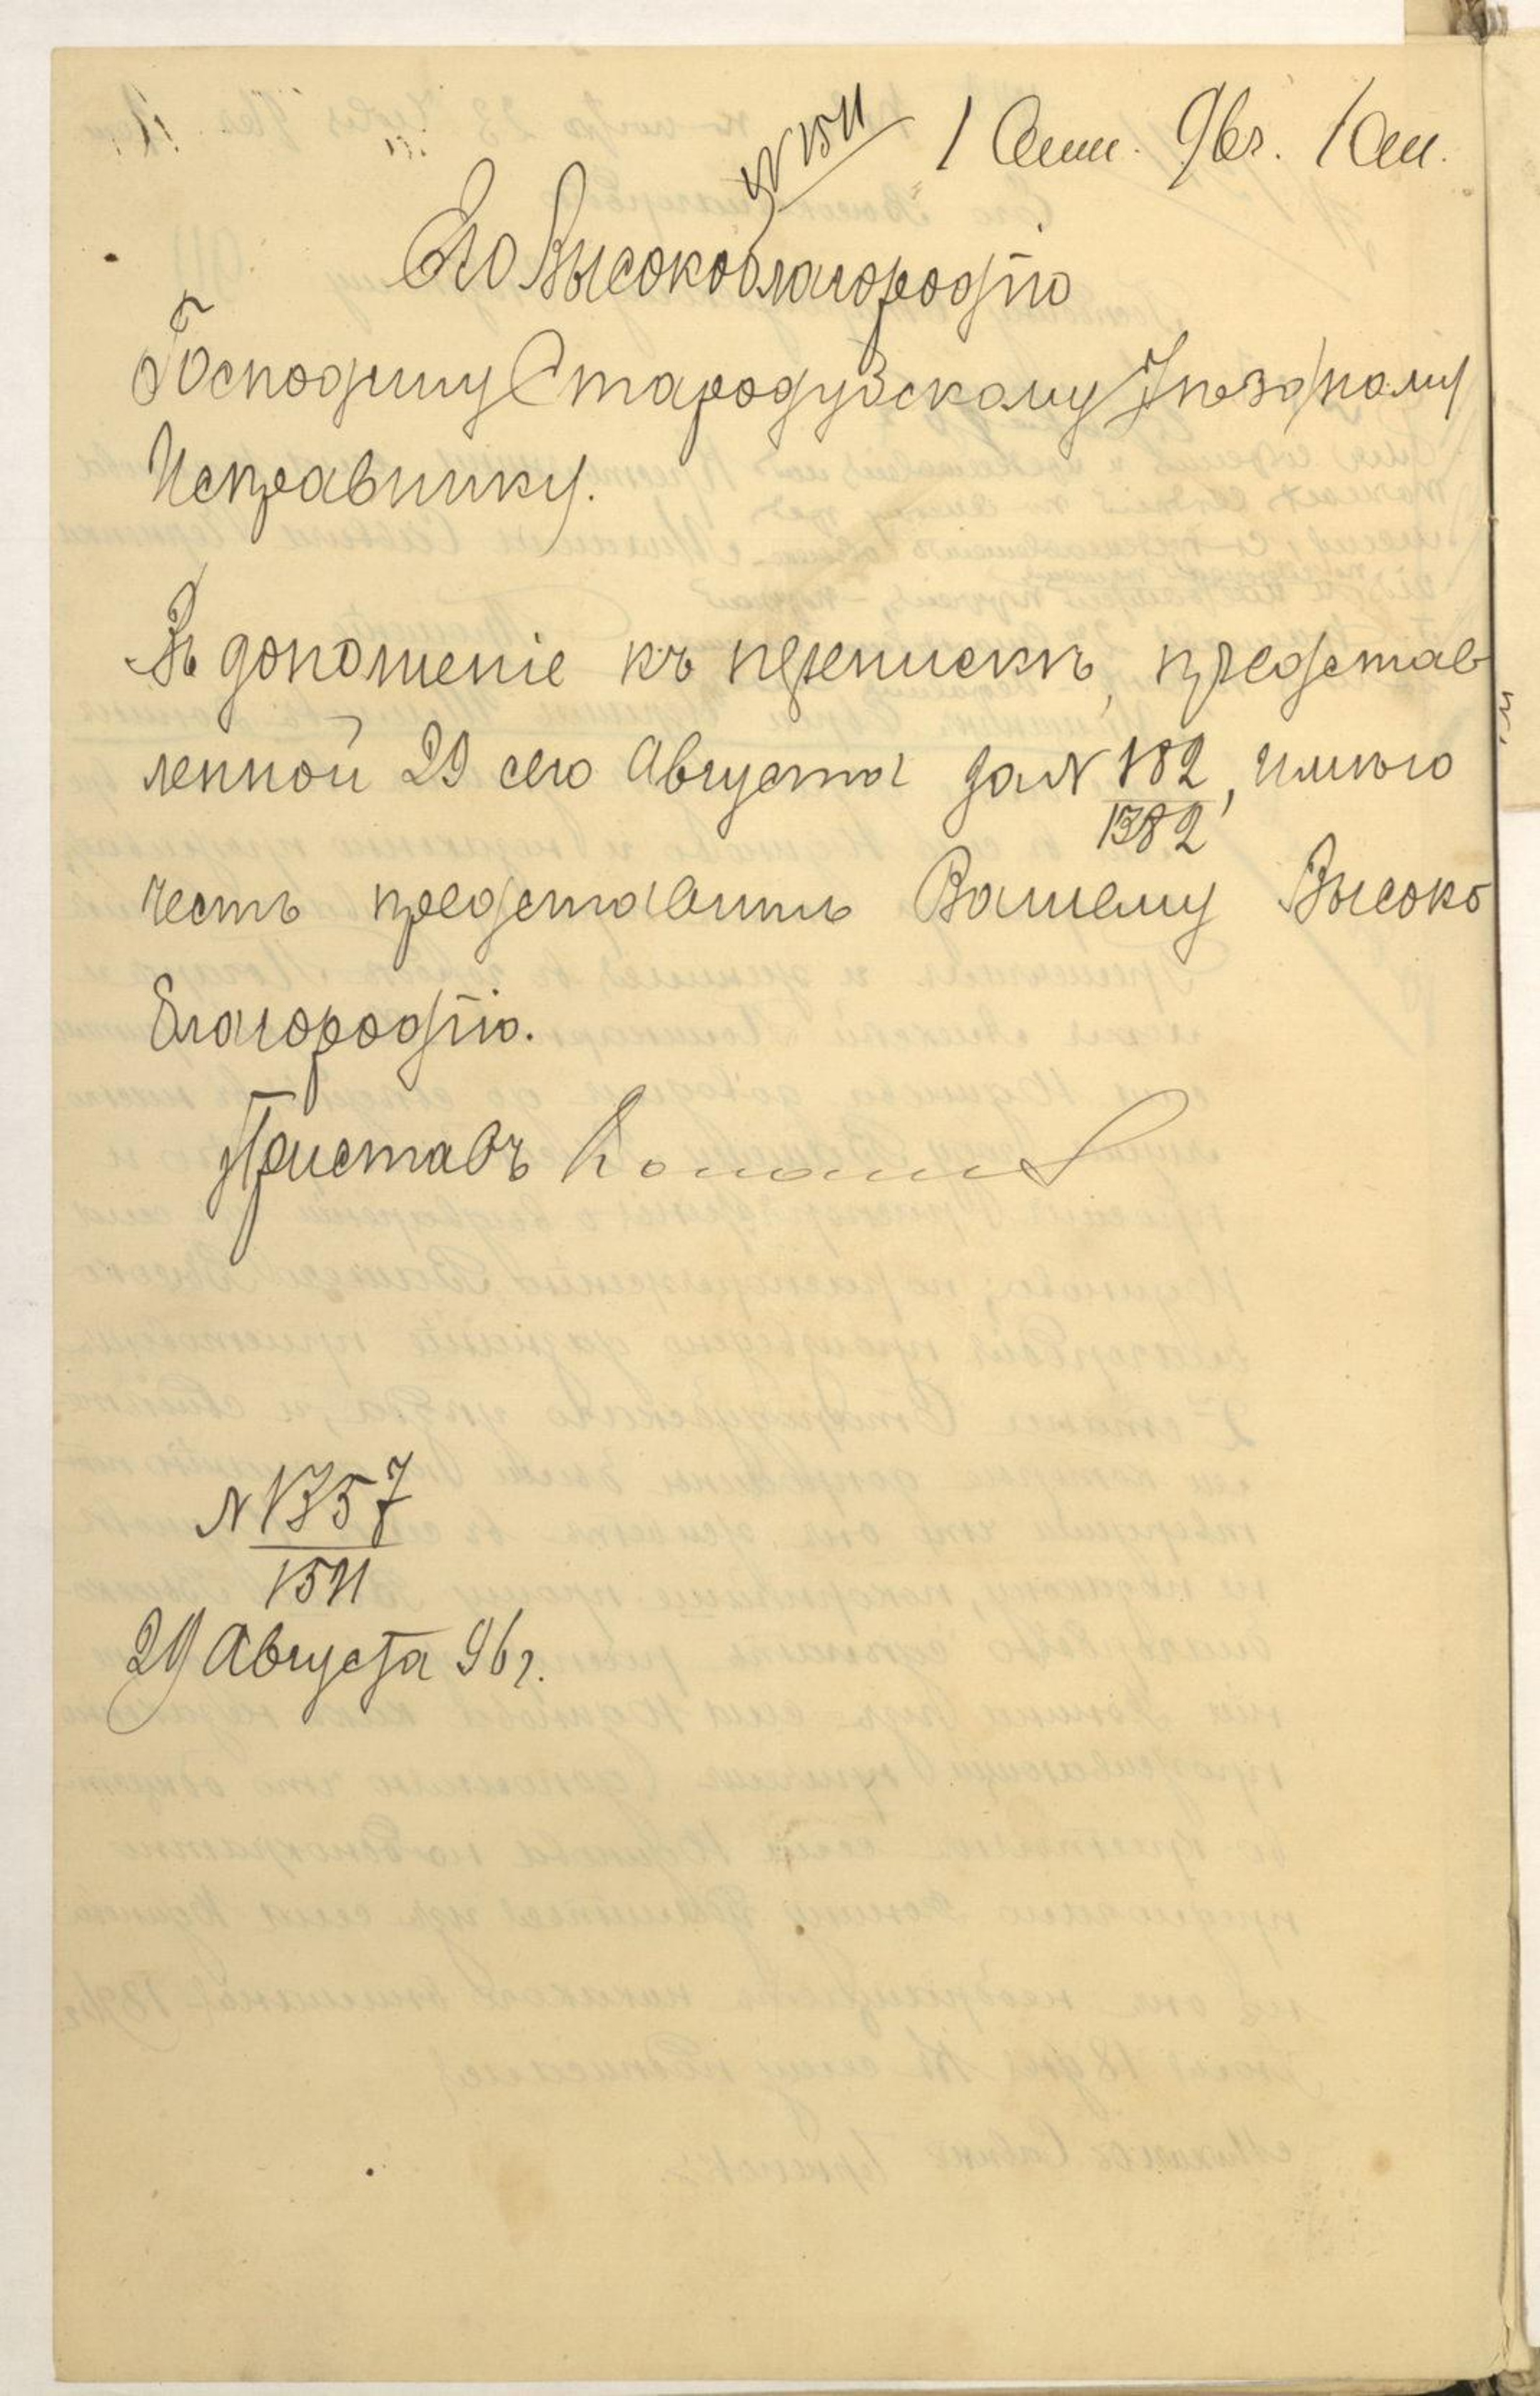 № 1511
1 Сент. 96 г. 1 Ст.
Его Высокоблагородію
Господину Стародубскому Уѣздному
Исправнику.
Въ дополненіе къ перепискѣ, представ
ленной 29 сего Августа за № 182/1382, имѣю
честь представить Вашему Высоко
благородію.
Приставъ
№ 1357/1511
29 Августа 96 г.